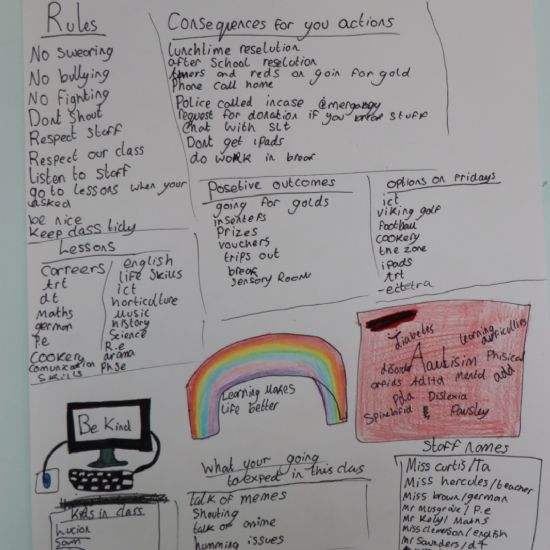 Rules
No Swearing
No bullying
No Fighting
Dont Shout
Respect Staff
Respect our class
Listen to Staff
go to lessons when your
asked
be nice
Keep class tidy
Consequences for you actions
lunchtime reselution
after School reselution
and reds on goin for gold
Phone call home
Police called incase
request for donation if you break stuff
Chat with SLT
Dont get iPads
do work in break
Posetive outcomes
going for golds
insentefs
Prizes
vouchers
trips out
break
sensory Room
options on fridays
ict
viking golf
football
cookery
the zone
iPads
Art
-ectetra
Lessons
Carreers
Art
dt
maths
german
P.e
Cookery
comunication
skills
english
life Skills
ict
horticulture
Music
history
Science
R.e
drama
Phse
Learning makes
life better
diabetes
learning
Aautisim
Phisical
disorder
Mental
add
pda
Dislexia
Be Kind
What your going
to expect in this class
talk of memes
Shouting
talk of anime
humming issues
Kids in class
Staff names
Miss curtis/Ta
Miss hercules/teacher
Miss brown/german
Mr musgrave/P.e
Mr Kely/Maths
Miss clemerson/english
Mr Saunders/dt